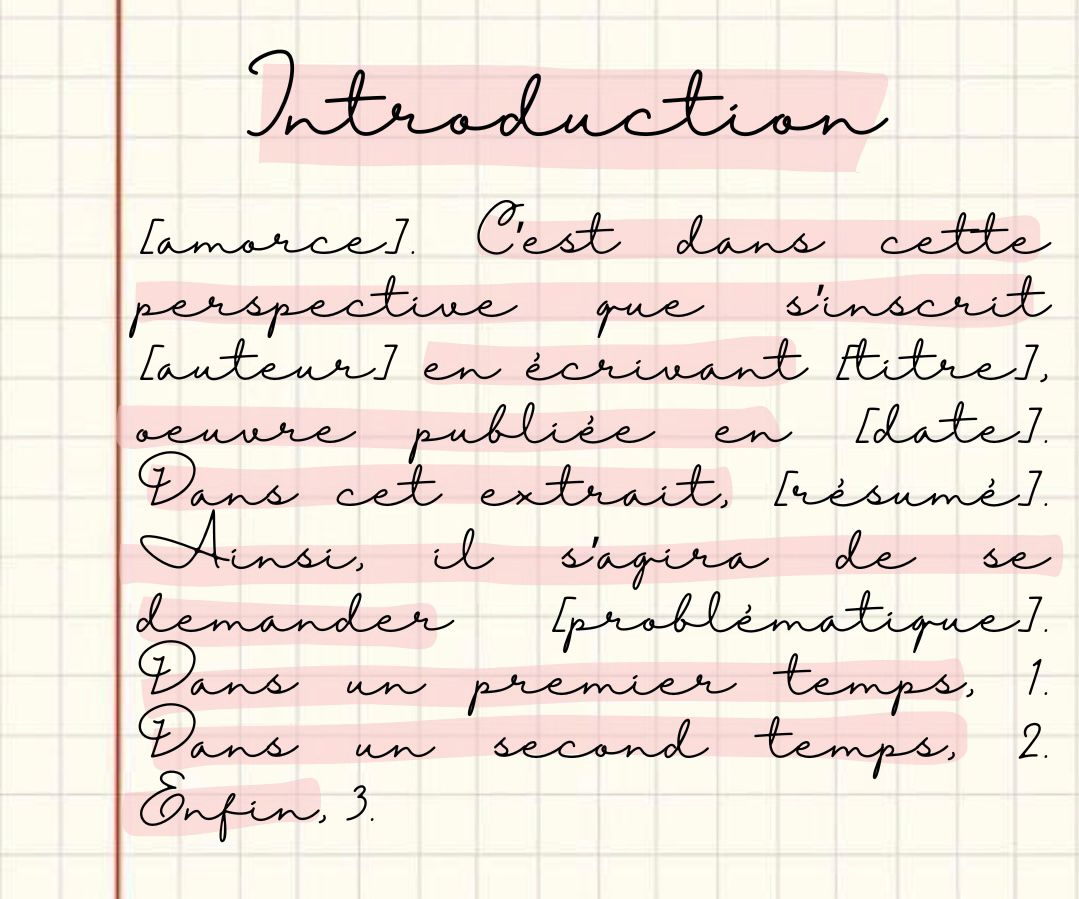 Introduction
[amorce]. C'est dans cette
perspective que s'inscrit
[auteur] en écrivant [titre],
oeuvre publiée en [date].
Dans cet extrait, [résumé].
Ainsi, il s'agira de se
demander [problématique].
Dans un premier temps, 1.
Dans un second temps, 2.
Enfin, 3.